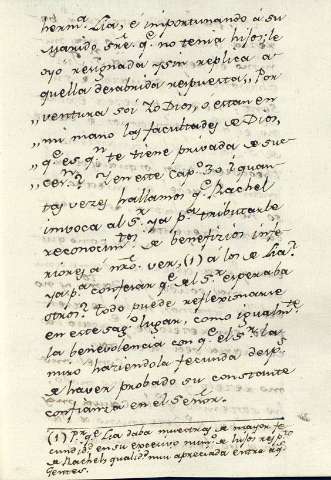 herm.ª Lia, é importunando á su
Marido sre. q.e no tenia hijos, le
oyó resignada y sin replica a-
quella desabrida respuesta,, Por
,, ventura soi Yo Dios, o estan en
,, mi mano las facultades de Dios,
,, q.e es q.n te tiene privada de su-
cen.n? y en este cap.o 30. i quan-
tas vezes hallamos q.e Rachel
invoca al S.r ya p.a tributarle
reconocim.tos de beneficios infe-
riores a nro. ver, (1) a los de Lia,
ya p.a confesar q.e del S.r esperaba
otros? todo puede reflexionarse
en este sag.o lugar, como igualm.te
la benevolencia con q.e el S.r la
miro haziendola fecunda desp.s
de haver probado su constante
confianza en el Señor.
(1) P.r q.e Lia daba muestras de mayor fe-
cundid.d en su excesivo num.o de hijos resp.to
de Rachel: qualid.d mui apreciada entre
gentes.